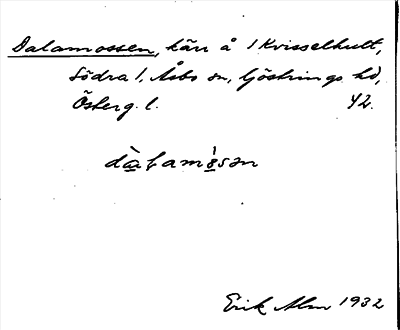 Dalamossen, kärr å 1 Kvisselhult,
Södra 1, Åsbo sn, Göstrings hd,
Österg. l. 42.
dàlamòsən
Erik Alm 1932